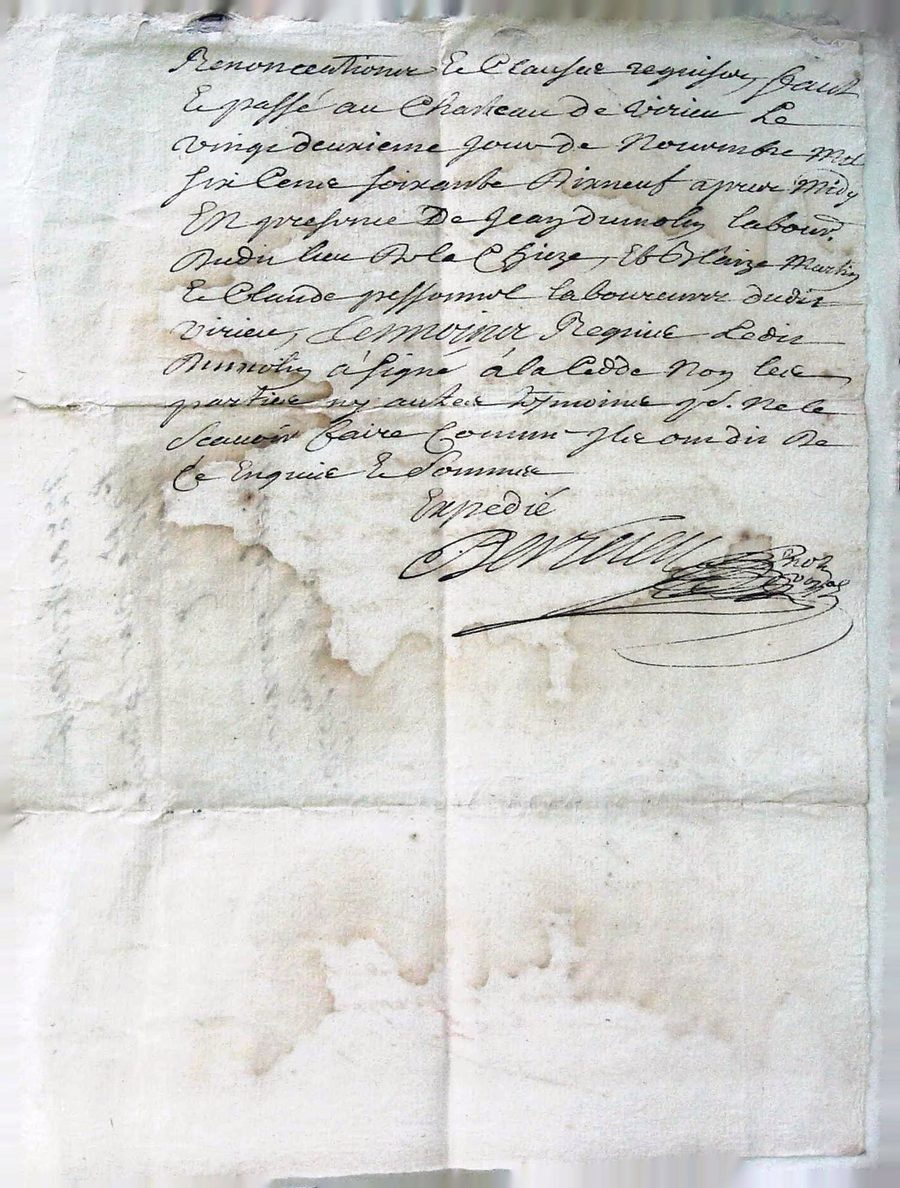 Renonceations Et Clauses requises, faict
Et passé au Chasteau de virieu Le
vingt deuxieme jour de Novembre Mil
six Cents soixante Dixneuf apres Midy
En presence De Jean dumolin labour.
Dudit lieu De la Chieze, Et Blaize Martin
Et Claude pessonnel laboureurs dudit
virieu, tesmoins Requis Ledit
Dumolin à signé à la Cedde Non les
parties ny autres tesmoins p. Ne le
Scavoir faire Comme Ils ont dit De
Ce Enquis Et Sommes
Expedié
not
royal